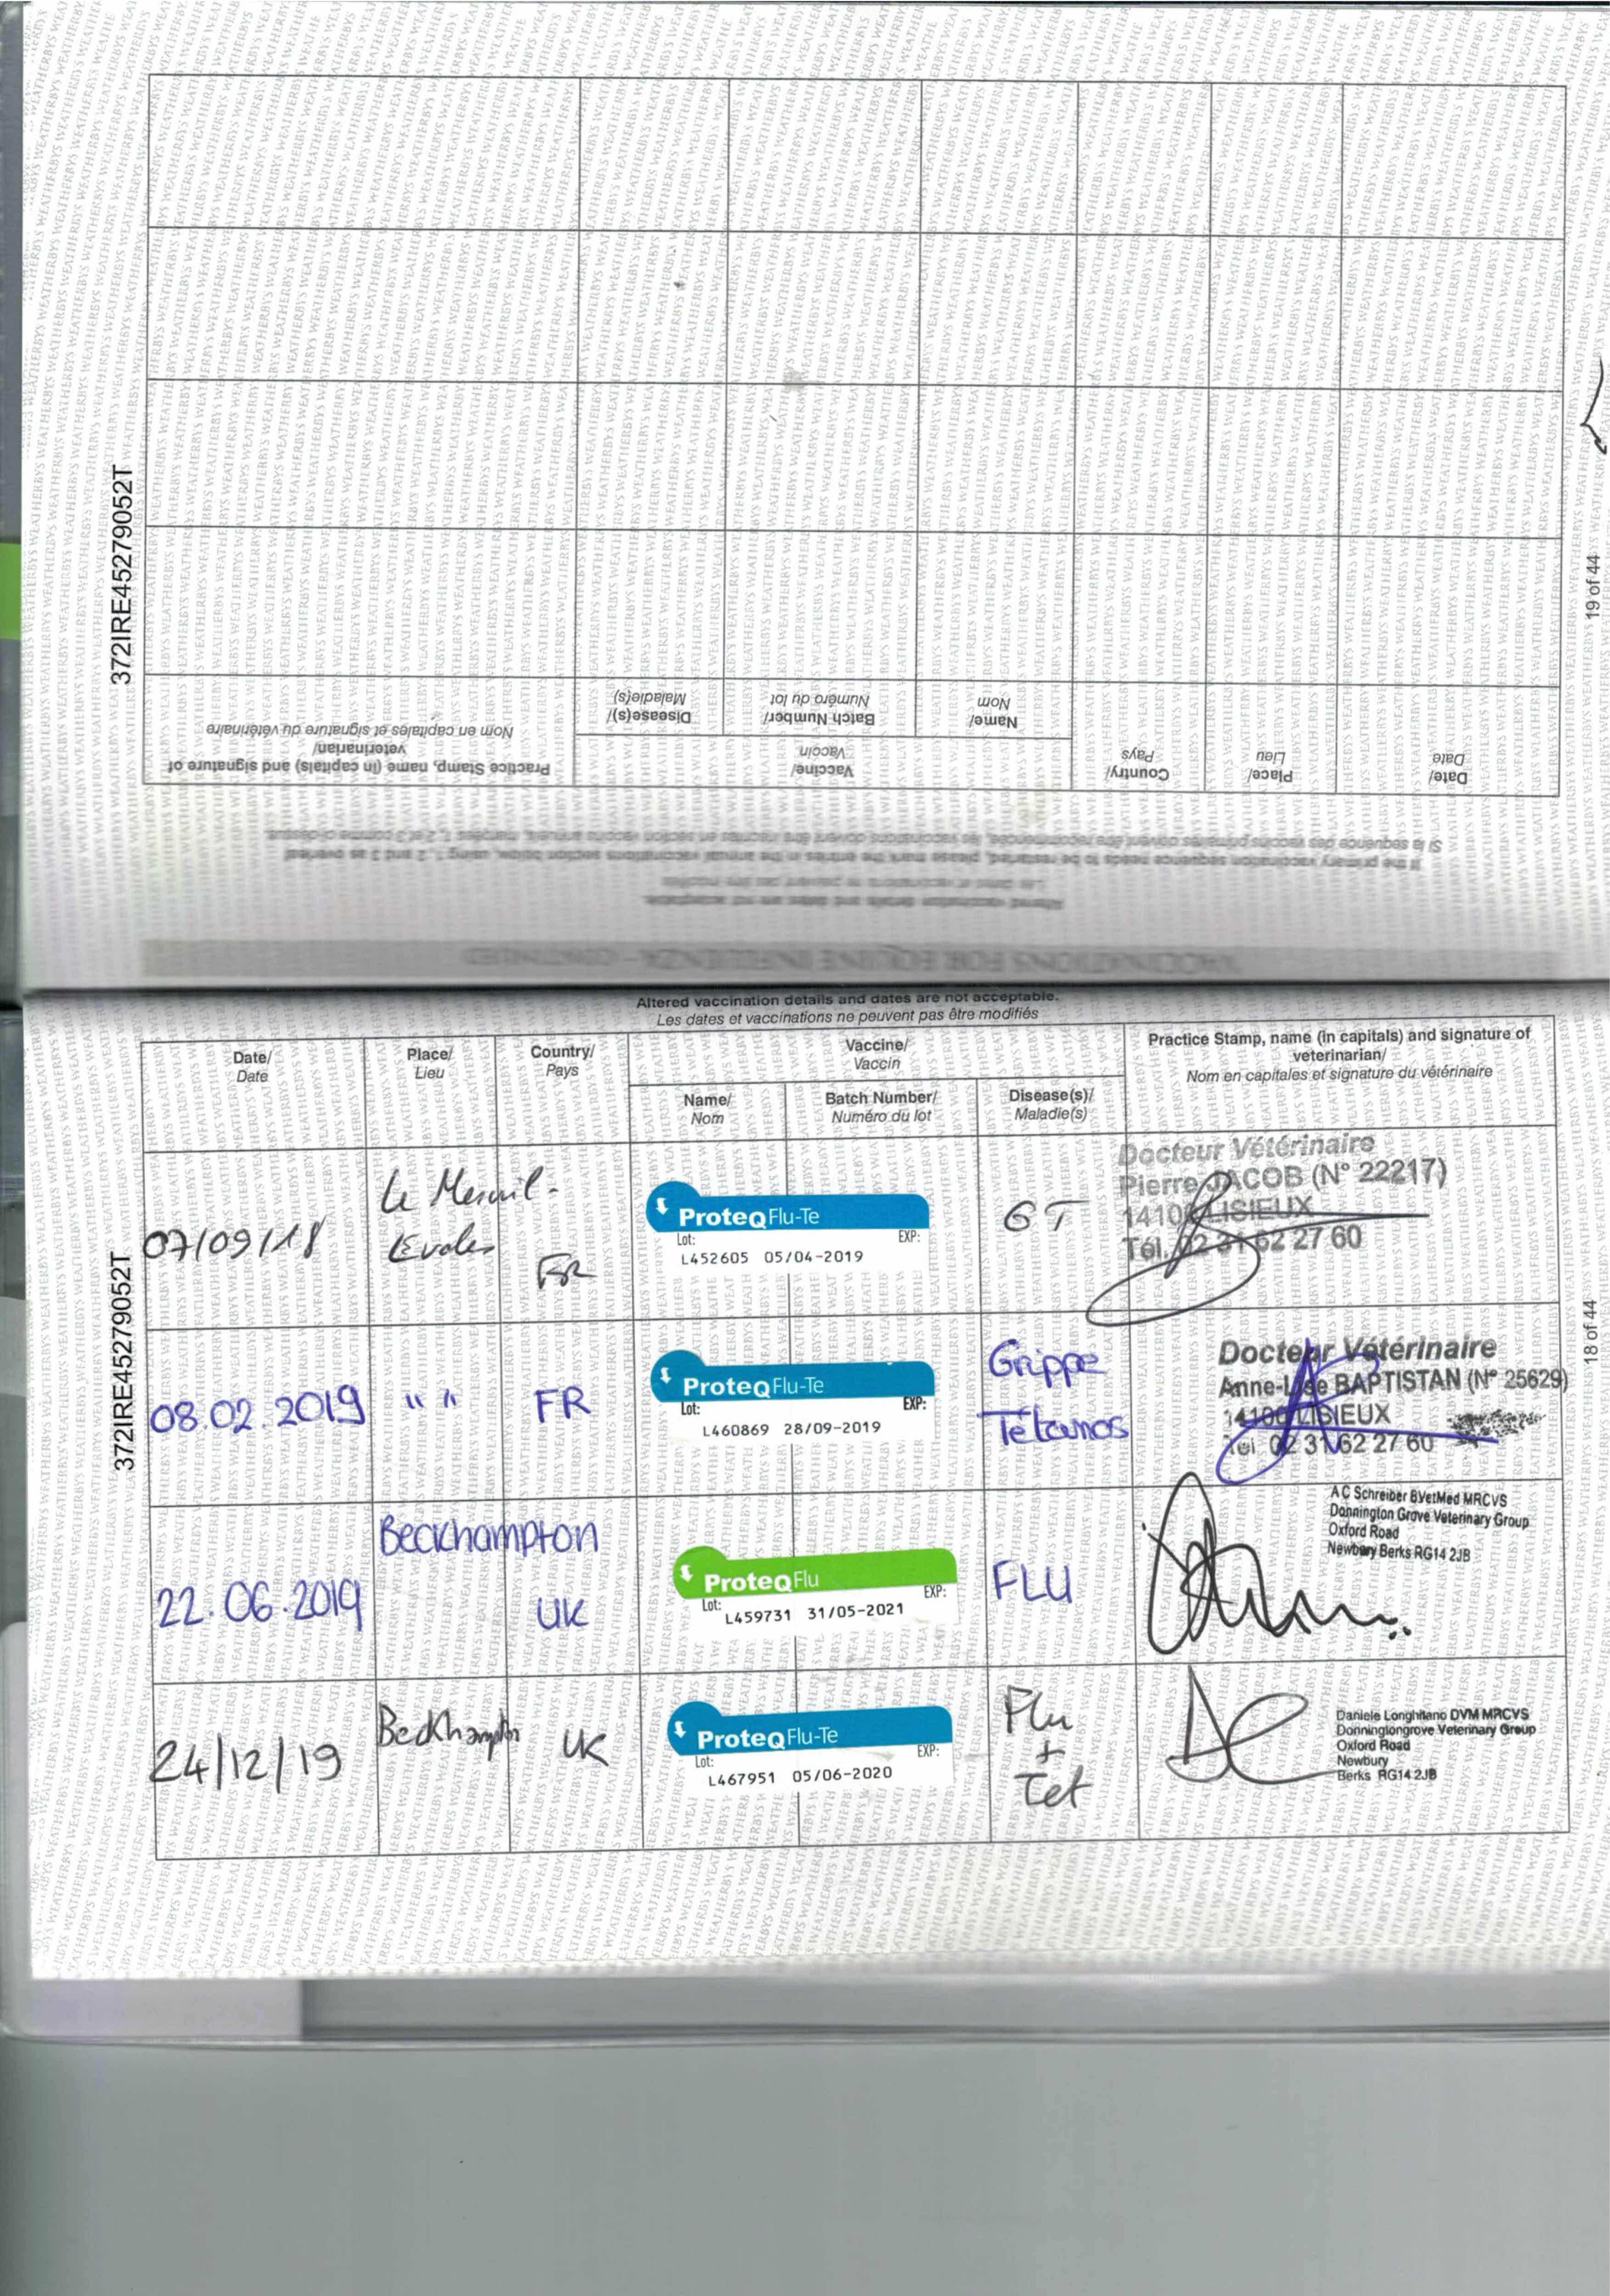 372IRE45279052T
19 of 44
VACCINATIONS FOR EQUINE INFLUENZA - CONTINUED
Altered vaccination details and dates are not acceptable.
Les dates et vaccinations ne peuvent pas être modifiés
If the primary vaccination sequence needs to be restarted, please mark the entries in the annual vaccinations section below, using 1, 2 and 3 as overleaf
Si la séquence des vaccins primaires doivent être recommencées, les vaccinations doivent être inscrites en section vaccins annuels, marquées 1, 2 et 3 comme ci-dessus.
Date/
Date
Place/
Lieu
Country/
Pays
Vaccine/
Vaccin
Name/
Nom
Batch Number/
Numéro du lot
Disease(s)/
Maladie(s)
Practice Stamp, name (in capitals) and signature of
veterinarian/
Nom en capitales et signature du vétérinaire
372IRE45279052T
18 of 44
Altered vaccination details and dates are not acceptable.
Les dates et vaccinations ne peuvent pas être modifiés
Date/
Date
Place/
Lieu
Country/
Pays
Vaccine/
Vaccin
Name/
Nom
Batch Number/
Numéro du lot
Disease(s)/
Maladie(s)
Practice Stamp, name (in capitals) and signature of
veterinarian/
Nom en capitales et signature du vétérinaire
07/09/18
Le Mesnil-
FR
ProteqFlu-Te
Lot: EXP:
L452605 05/04-2019
GT
Docteur Vétérinaire
Pierre JACOB (N° 22217)
14100 LISIEUX
Tél. 02 31 62 27 60
08.02.2019
" "
FR
ProteqFlu-Te
Lot: EXP:
L460869 28/09-2019
Grippe
Tétanos
Docteur Vétérinaire
Anne-Lise BAPTISTAN (N° 25629)
14100 LISIEUX
Tél. 02 31 62 27 60
22.06.2019
Beckhampton
UK
ProteqFlu
Lot: EXP:
L459731 31/05-2021
FLU
A C Schreiber BVetMed MRCVS
Donnington Grove Veterinary Group
Oxford Road
Newbury Berks RG14 2JB
24/12/19
Beckhampton
UK
ProteqFlu-Te
Lot: EXP:
L467951 05/06-2020
Flu
+
Tet
Daniele Longhitano DVM MRCVS
Donningtongrove Veterinary Group
Oxford Road
Newbury
Berks RG14 2JB